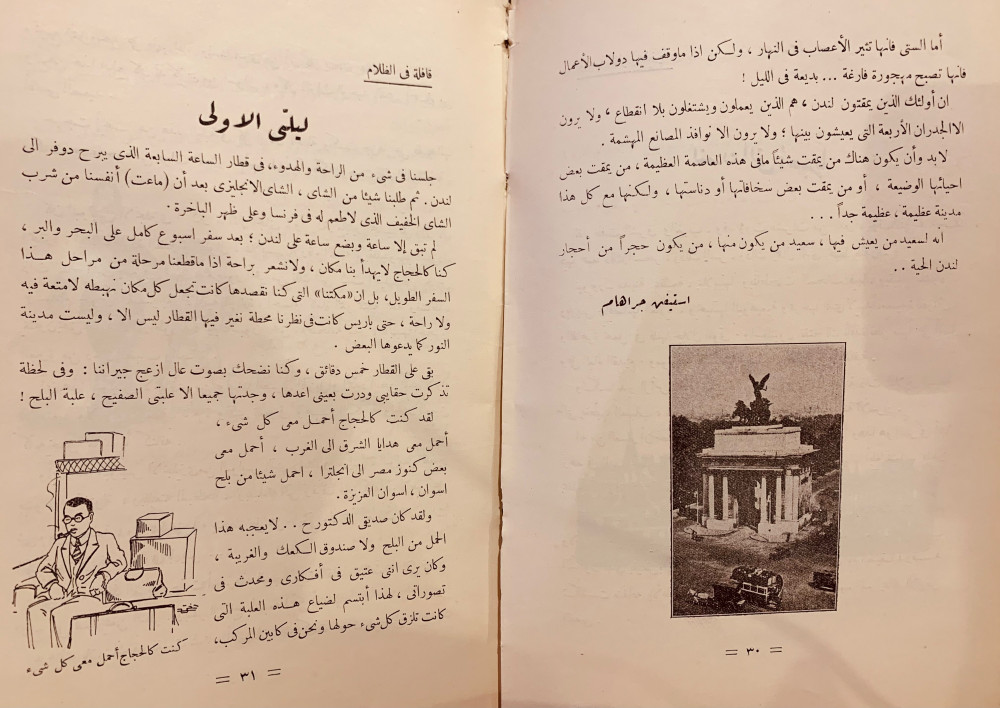 أما الستى فانها تثير الأعصاب فى النهار ، ولكن اذا ماوقف فيها دولاب الأعمال
فانها تصبح مهجورة فارغة ... بديعة فى الليل !
ان أولئك الذين يمقتون لندن ، هم الذين يعملون ويشتغلون بلا انقطاع ، ولا يرون
الاالجدران الأربعة التى يعيشون بينها ؛ ولا يرون الا نوافذ المصانع المهشمة .
لابد وأن يكون هناك من يمقت شيئاً مافى هذه العاصمة العظيمة ، من يمقت بعض
احيائها الوضيعة ، أو من يمقت بعض سخافاتها أو دناستها ، ولكنها مع كل هذا
مدينة عظيمة ، عظيمة جداً ...
انه لسعيد من يعيش فيها ، سعيد من يكون منها ، من يكون حجراً من أحجار
لندن الحية ..
استيفن جراهام
= ٣٠ =
قافلة فى الظلام
ليلتى الاولى
جلسنا فى شىء من الراحة والهدوء، فى قطار الساعة السابعة الذى يبرح دوفر الى
لندن. ثم طلبنا شيئا من الشاى ، الشاى الانجليزى بعد أن (ماعت) أنفسنا من شرب
الشاى الخفيف الذى لاطعم له فى فرنسا وعلى ظهر الباخرة .
لم تبق إلا ساعة وبضع ساعة على لندن ؛ بعد سفر اسبوع كامل على البحر والبر ،
كنا كالحجاج لايهدأ بنا مكان ، ولانشعر براحة اذا ماقطعنا مرحلة من مراحل هذا
السفر الطويل، بل ان «مكتنا» التى كنا نقصدها كانت تجعل كل مكان نهبطه لامتعة فيه
ولا راحة ، حتى باريس كانت فى نظرنا محطة نغير فيها القطار ليس الا ، وليست مدينة
النور كما يدعوها البعض .
بقى على القطار خمس دقائق ، وكنا نضحك بصوت عال ازعج جيراننا : وفى لحظة
تذكرت حقايبى ودرت بعينى اعدها ، وجدتها جميعا الا علبتى الصفيح ، علبة البلح !
لقد كنت كالحجاج أحمل معى كل شىء ،
أحمل معى هدايا الشرق الى الغرب ، أحمل معى
بعض كنوز مصر الى انجلترا ، احمل شيئا من بلح
اسوان ، اسوان العزيزة .
ولقد كان صديقى الدكتور ح .. لايعجبه هذا
الحمل من البلح ولا صندوق الكعك والغريبة ،
وكان يرى اننى عتيق فى أفكارى ومحدث فى
تصوراتى ، لهذا أبتسم لضياع هذه العلبة التى
كانت تلزق كل شىء حولها ونحن فى كابين المركب،
كنت كالحجاج أحمل معى كل شىء
= ٣١ =